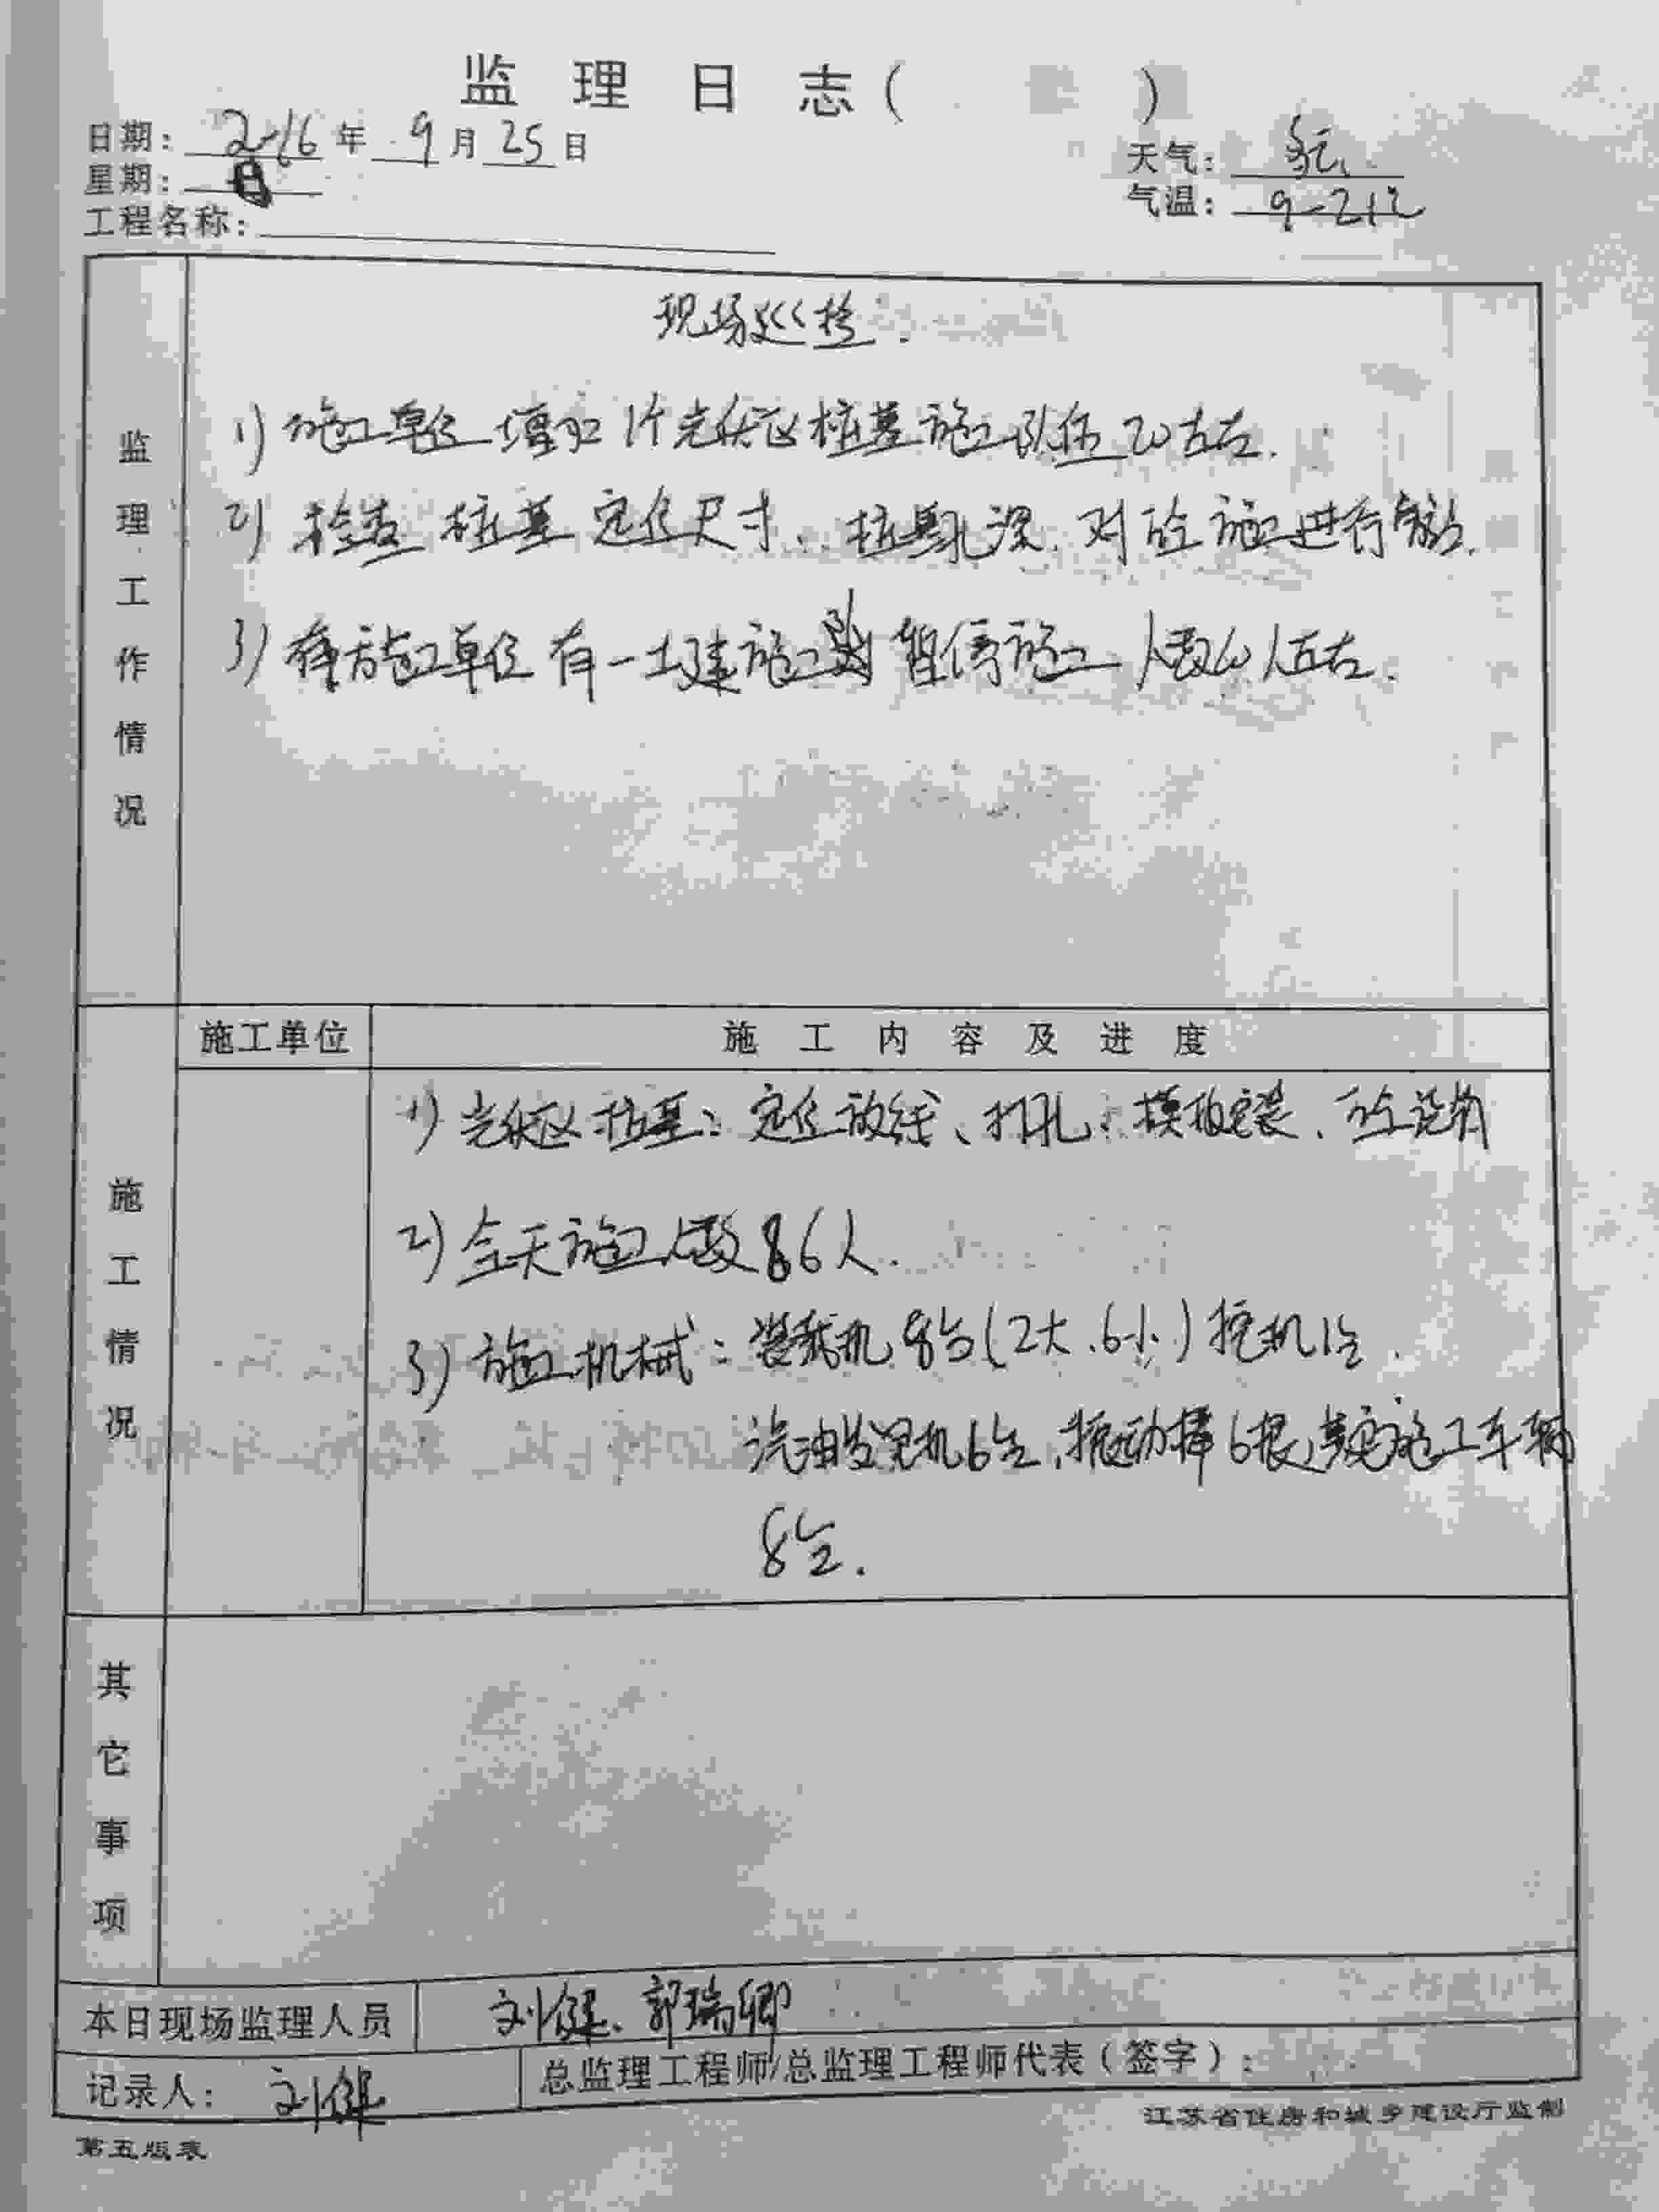 监理日志( )
日期: 2016年 9月25日
星期: 日
天气:
气温: 9-21℃
工程名称:
监理工作情况
现场巡检.
1) 施工单位增加1个光伏区桩基施工队伍20左右.
2) 检查桩基定位尺寸、桩基孔深. 对砼施工进行旁站.
3) 施工单位有一土建施工队暂停施工 人数 人左右.
施工情况
施工单位 施工内容及进度
1) 光伏区桩基: 定位放线、打孔、模板安装、砼浇筑
2) 今天施工人数86人.
3) 施工机械: 装载机8台(2大.6小) 挖机1台.
汽油发电机6台, 振动棒6根, 施工车辆
8台.
其它事项
本日现场监理人员 刘健、郭瑞卿
记录人: 刘健 总监理工程师/总监理工程师代表(签字):
第五版表 江苏省住房和城乡建设厅监制